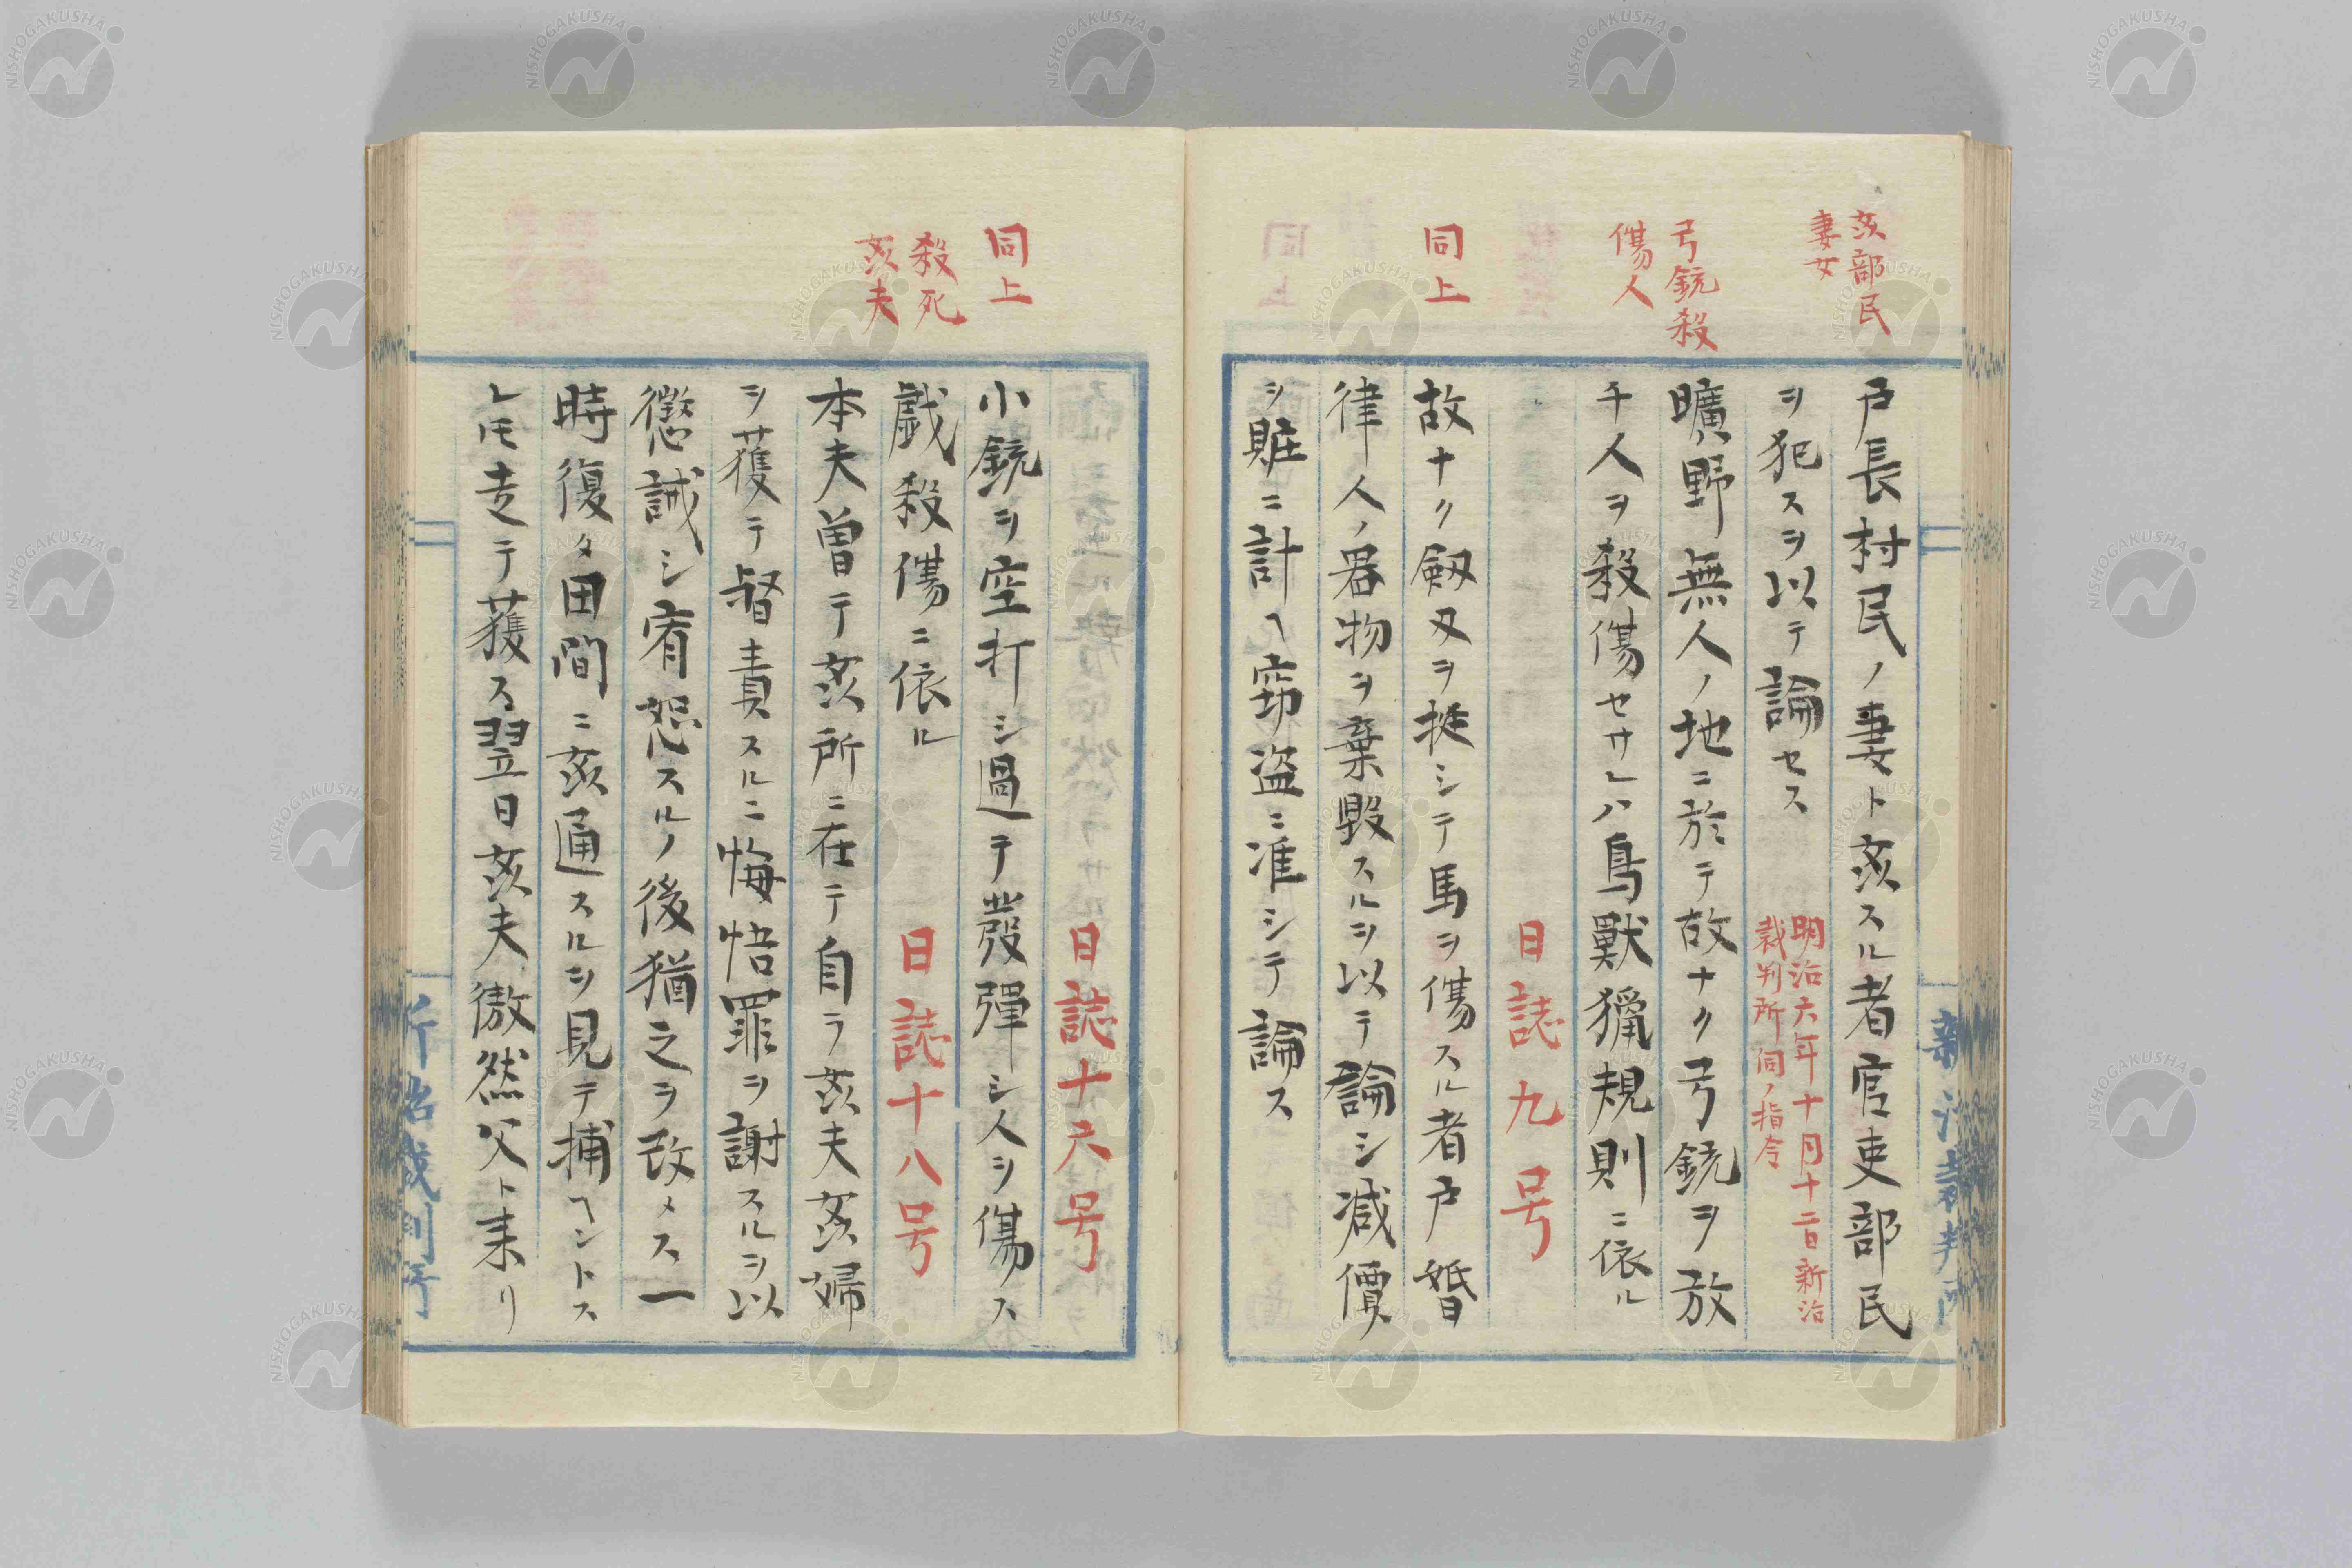 姦部民
妻女
戸長村民ノ妻ト姦スル者官吏部民
ヲ犯スヲ以テ論セス
明治六年十月十二日新治
裁判所伺ノ指令
弓銃殺
傷人
曠野無人ノ地ニ於テ故ナク弓銃ヲ放
チ人ヲ殺傷セサレハ鳥獣猟規則ニ依ル
日誌九号
同上
故ナク剱刃ヲ挺シテ馬ヲ傷スル者戸婚
律人ノ器物ヲ棄毀スルヲ以テ論シ減價
ヲ賍ニ計ヘ窃盗ニ准シテ論ス
新治裁判所
日誌十六号
同上
小銃ヲ空打シ過テ發彈シ人ヲ傷ス
戯殺傷ニ依ル
日誌十八号
殺死
姦夫
本夫曽テ姦所ニ在テ自ラ姦夫姦婦
ヲ獲テ督責スルニ悔悟罪ヲ謝スルヲ以
懲誡シ宥恕スルノ後猶之ヲ改メス一
時復タ田間ニ姦通スルヲ見テ捕ヘントス
レモ走テ獲ス翌日姦夫傲然父ト耒リ
新治裁判所
NISHOGAKUSHA